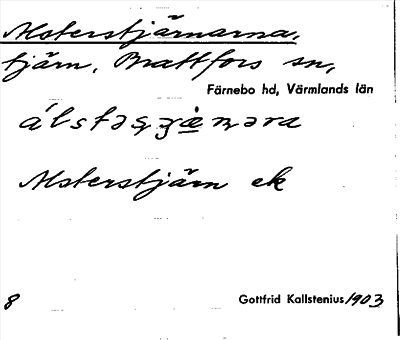 Alsterstjärnarna,
tjärn, Brattfors sn,
Färnebo hd, Värmlands län
Alsterstjärn ek
8
Gottfrid Kallstenius 1903